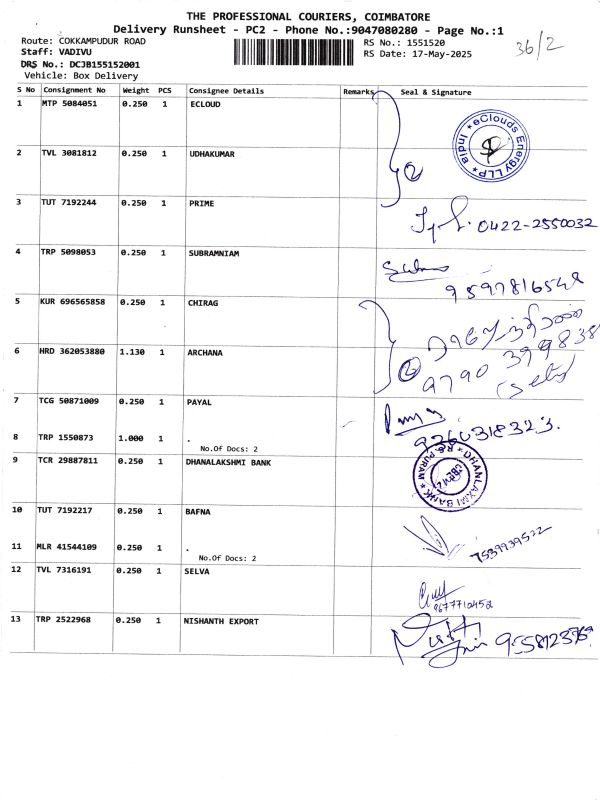 THE PROFESSIONAL COURIERS, COIMBATORE
Delivery Runsheet - PC2 - Phone No.:9047080280 - Page No.:1
Route: COKKAMPUDUR ROAD
RS No.: 1551520
36/2
Staff: VADIVU
RS Date: 17-May-2025
DRS No.: DCJB155152001
Vehicle: Box Delivery
S No Consignment No Weight PCS Consignee Details Remarks Seal & Signature
1 MTP 5084051 0.250 1 ECLOUD
eClouds Energy LLP * India *
2 TVL 3081812 0.250 1 UDHAKUMAR
2
3 TUT 7192244 0.250 1 PRIME
0422-2550032
4 TRP 5098053 0.250 1 SUBRAMNIAM
9597816548
5 KUR 696565858 0.250 1 CHIRAG
6 HRD 362053880 1.130 1 ARCHANA
2
9790 399838
7 TCG 50871009 0.250 1 PAYAL
9360318323.
8 TRP 1550873 1.000 1 .
No.Of Docs: 2
9 TCR 29887811 0.250 1 DHANALAKSHMI BANK
DHANLAXMI BANK * R.S. PURAM *
10 TUT 7192217 0.250 1 BAFNA
7539939522
11 MLR 41544109 0.250 1 .
No.Of Docs: 2
12 TVL 7316191 0.250 1 SELVA
9677710452
13 TRP 2522968 0.250 1 NISHANTH EXPORT